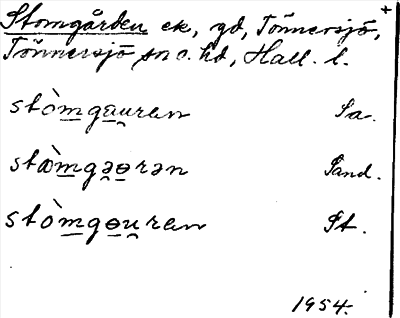 Stomgården ek, gd, Tönnersjö, +
Tönnersjö sn o. hd, Hall. l.
stòmga̲u̯ren Sa.
stòmgə̲ɵ̯rən Sand.
stòmgɵ̲u̯ren St.
1954.